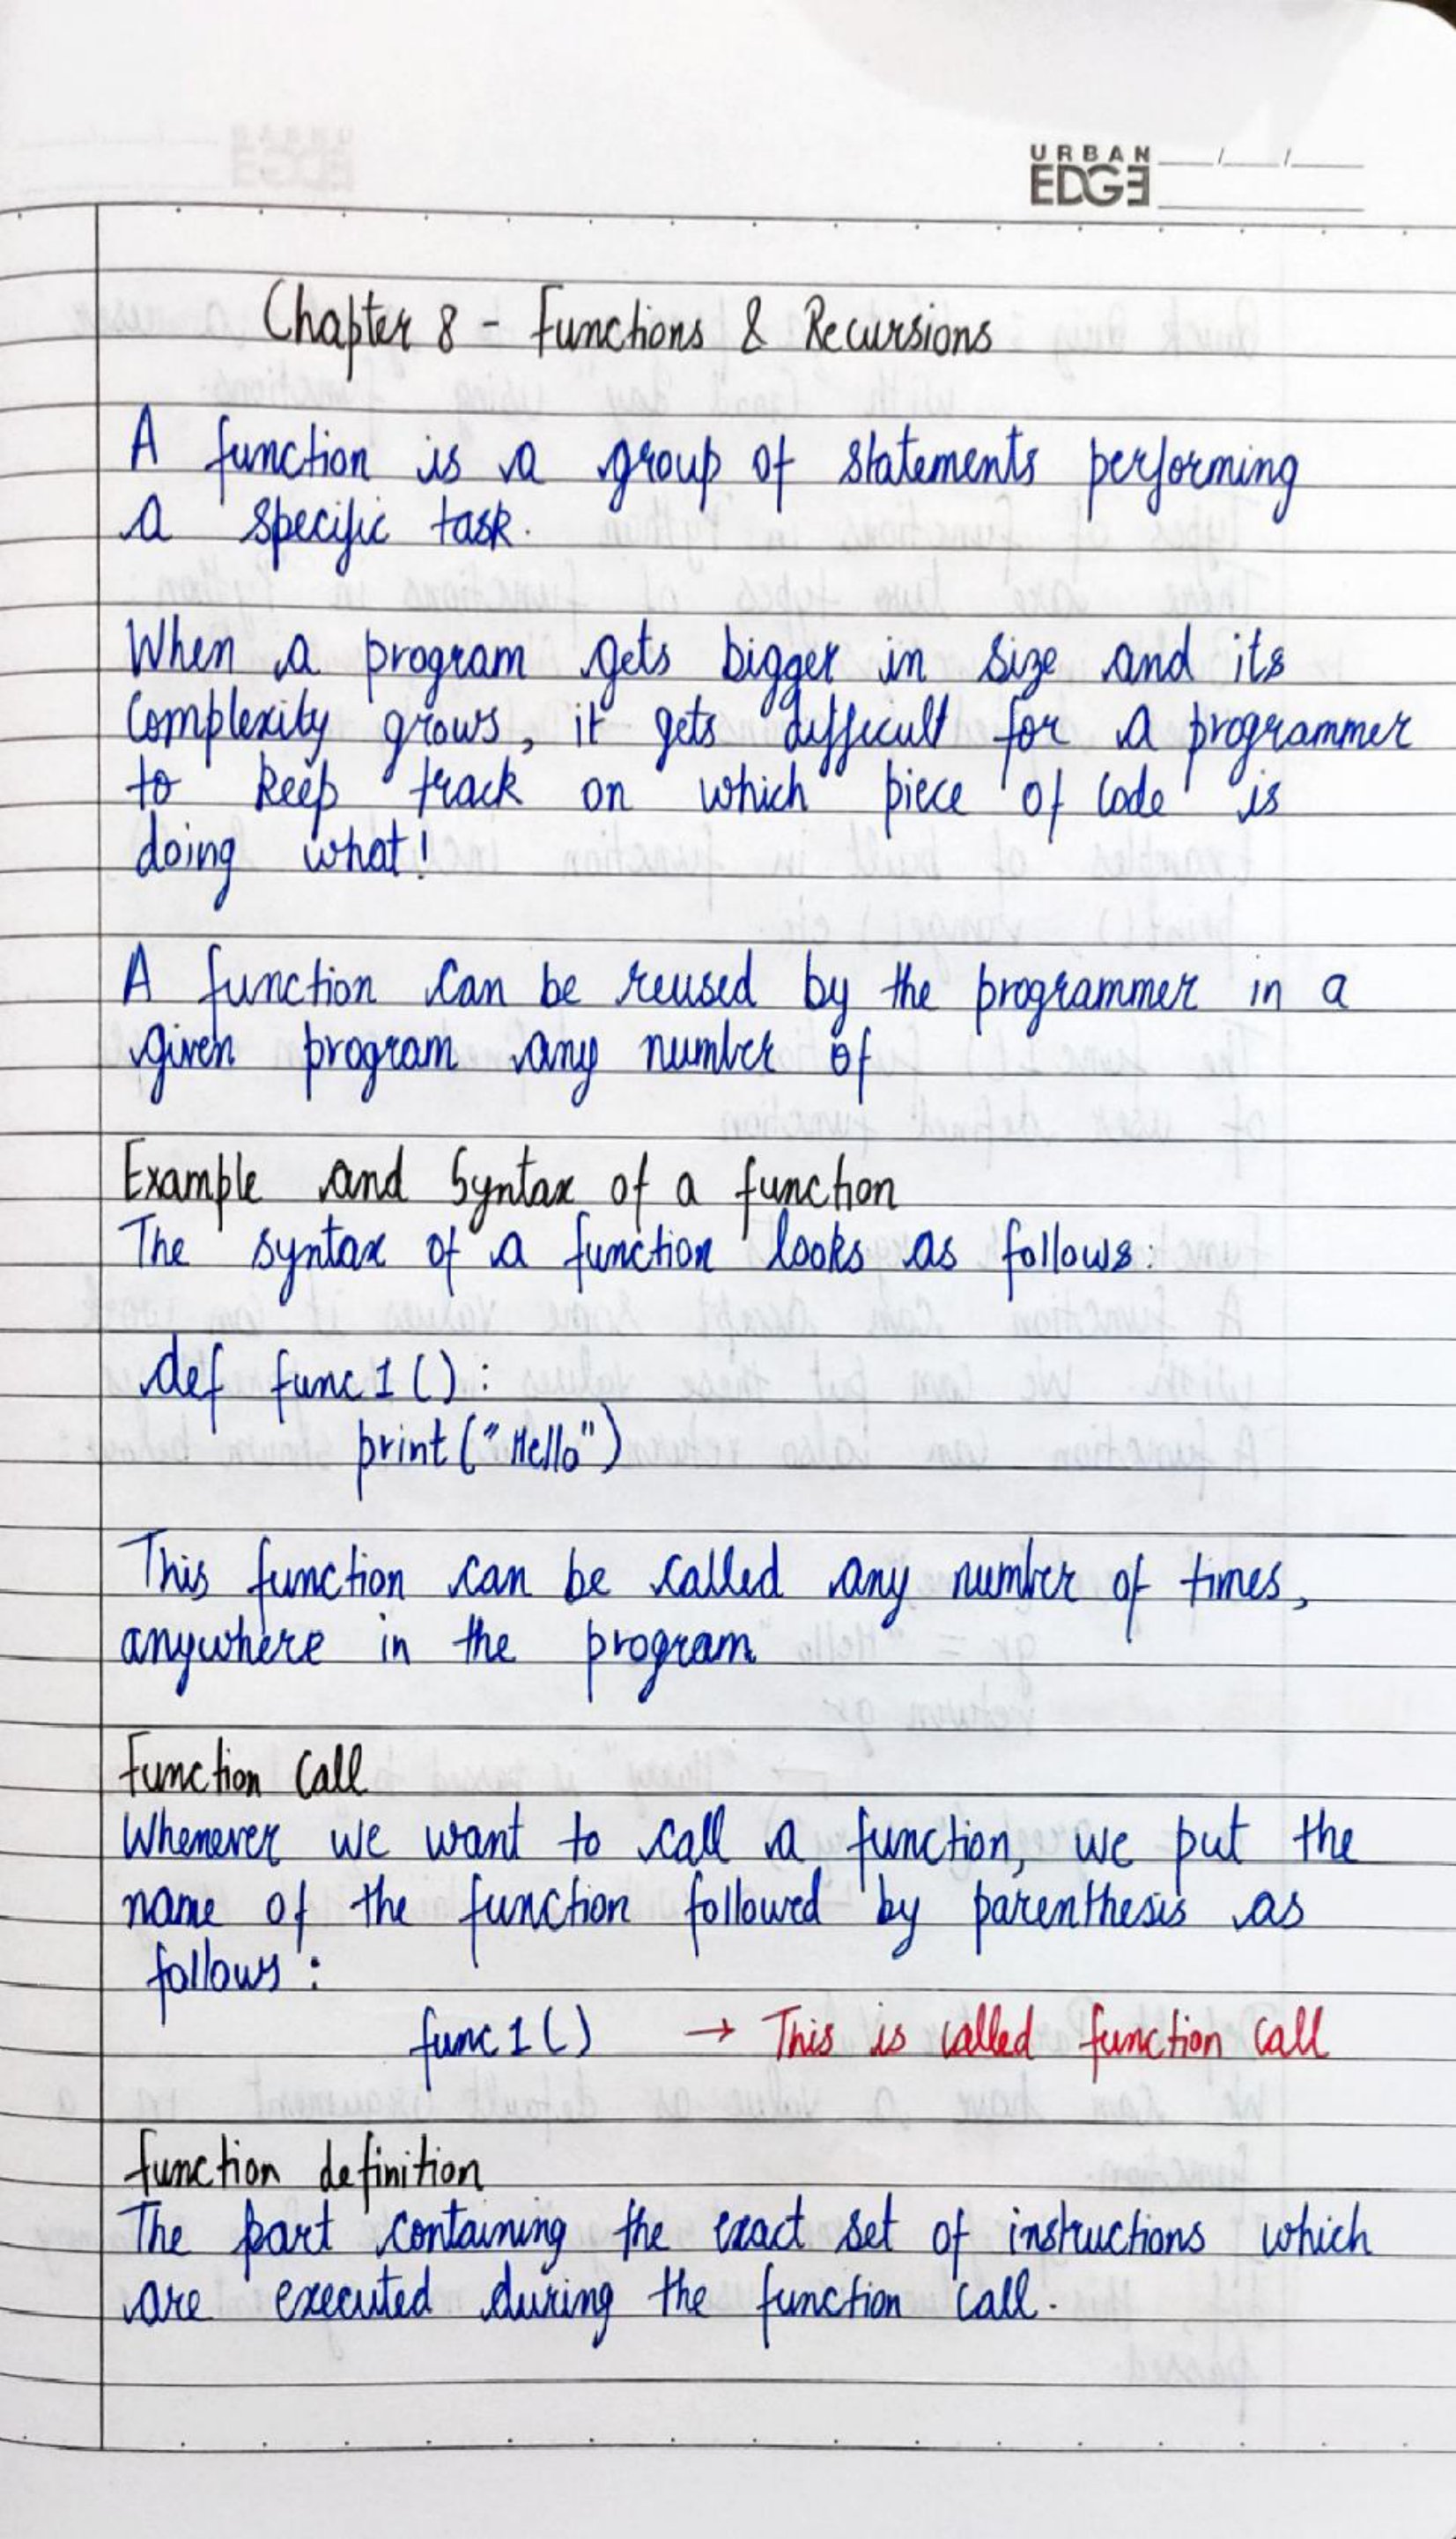 URBAN
EDGE
Chapter 8 - Functions & Recursions
A function is a group of statements performing
a specific task.
When a program gets bigger in size and its
complexity grows, it gets difficult for a programmer
to keep track on which piece of code is
doing what!
A function can be reused by the programmer in a
given program any number of
Example and Syntax of a function
The syntax of a function looks as follows:
def func1():
print("Hello")
This function can be called any number of times,
anywhere in the program
Function Call
Whenever we want to call a function, we put the
name of the function followed by parenthesis as
follows:
func1() → This is called function call
function definition
The part containing the exact set of instructions which
are executed during the function call.